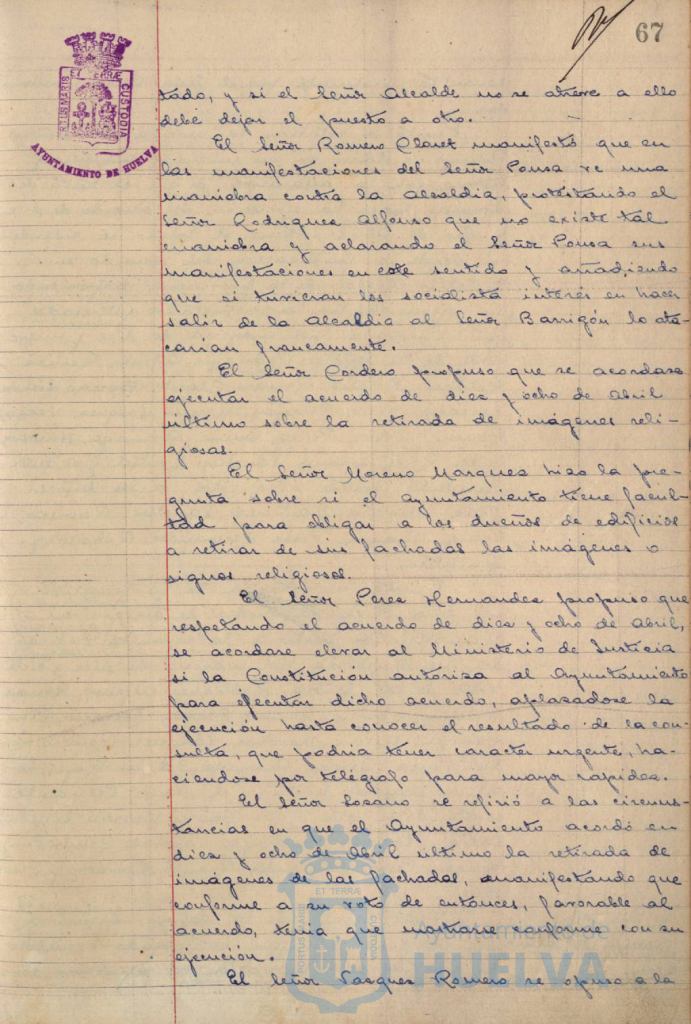 67
PORTUS MARIS ET TERRÆ CUSTODIA
AYUNTAMIENTO DE HUELVA
tado, y si el Señor Alcalde no se atreve a ello
debe dejar el puesto a otro.
El Señor Romero Claret manifestó que en
las manifestaciones del Señor Ponsa ve una
maniobra contra la Alcaldia, protestando el
Señor Rodriguez Alfonso que no existe tal
maniobra y aclarando el Señor Ponsa sus
manifestaciones en este sentido y añadiendo
que si tuvieran los socialista interés en hacer
salir de la Alcaldia al Señor Barrigón lo ata-
carian francamente.
El Señor Cordero propuso que se acordase
ejecutar el acuerdo de diez y ocho de Abril
último sobre la retirada de imágenes reli-
giosas.
El Señor Moreno Marquez hizo la pre-
gunta sobre si el Ayuntamiento tiene facul-
tad para obligar a los dueños de edificios
a retirar de sus fachadas las imágenes o
signos religiosos.
El Señor Perez Hernandez propuso que
respetando el acuerdo de diez y ocho de Abril,
se acordase elevar al Ministerio de Justicia
si la Constitución autoriza al Ayuntamiento
para ejecutar dicho acuerdo, aplazadose la
ejecución hasta conocer el resultado de la con-
sulta, que podria tener caracter urgente, ha-
ciendose por telégrafo para mayor rapidez.
El Señor Lozano se refirió a las circuns-
tancias en que el Ayuntamiento acordó en
diez y ocho de Abril ultimo la retirada de
imágenes de las fachadas, manifestando que
conforme a su voto de entonces, favorable al
acuerdo, tenia que mostrarse conforme con su
ejecución.
El Señor Vazquez Romero se opuso a la
PORTUS MARIS ET TERRÆ CUSTODIA
Ayuntamiento de
HUELVA